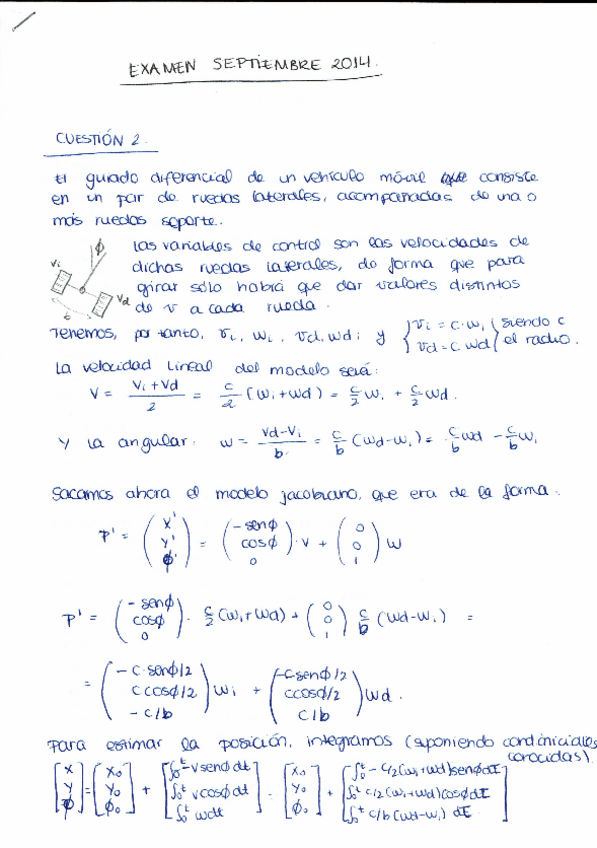 EXAMEN SEPTIEMBRE 2014.
CUESTIÓN 2.
El guiado diferencial de un vehículo móvil consiste
en un par de ruedas laterales, acompañadas de una o
más ruedas soporte.
Las variables de control son las velocidades de
dichas ruedas laterales, de forma que para
girar sólo habrá que dar valores distintos
de v a cada rueda.
ϕ
Vi
Vd
b
Tenemos, por tanto, vi, wi, vd, wd; y { vi = c·wi vd = c wd } siendo c el radio.
La velocidad lineal del modelo será:
V = (Vi + Vd)/2 = c/2 (wi + wd) = c/2 wi + c/2 wd.
Y la angular: w = (Vd - Vi)/b = c/b (wd - wi) = c/b wd - c/b wi
Sacamos ahora el modelo jacobiano, que era de la forma:
P' = (x' y' ϕ') = (-senϕ cosϕ 0)·v + (0 0 1) w
P' = (-senϕ cosϕ 0)· c/2 (wi + wd) + (0 0 1) c/b (wd - wi) =
= (-c·senϕ/2 c cosϕ/2 -c/b) wi + (-c senϕ/2 c cosϕ/2 c/b) wd.
Para estimar la posición, integramos (suponiendo cond. iniciales
conocidas).
[x y ϕ] = [x0 y0 ϕ0] + [∫0t -v senϕ dt ∫0t v cosϕ dt ∫0t w dt] = [x0 y0 ϕ0] + [∫0t -c/2 (wi + wd) senϕ dt ∫0t c/2 (wi + wd) cosϕ dt ∫0t c/b (wd - wi) dt]